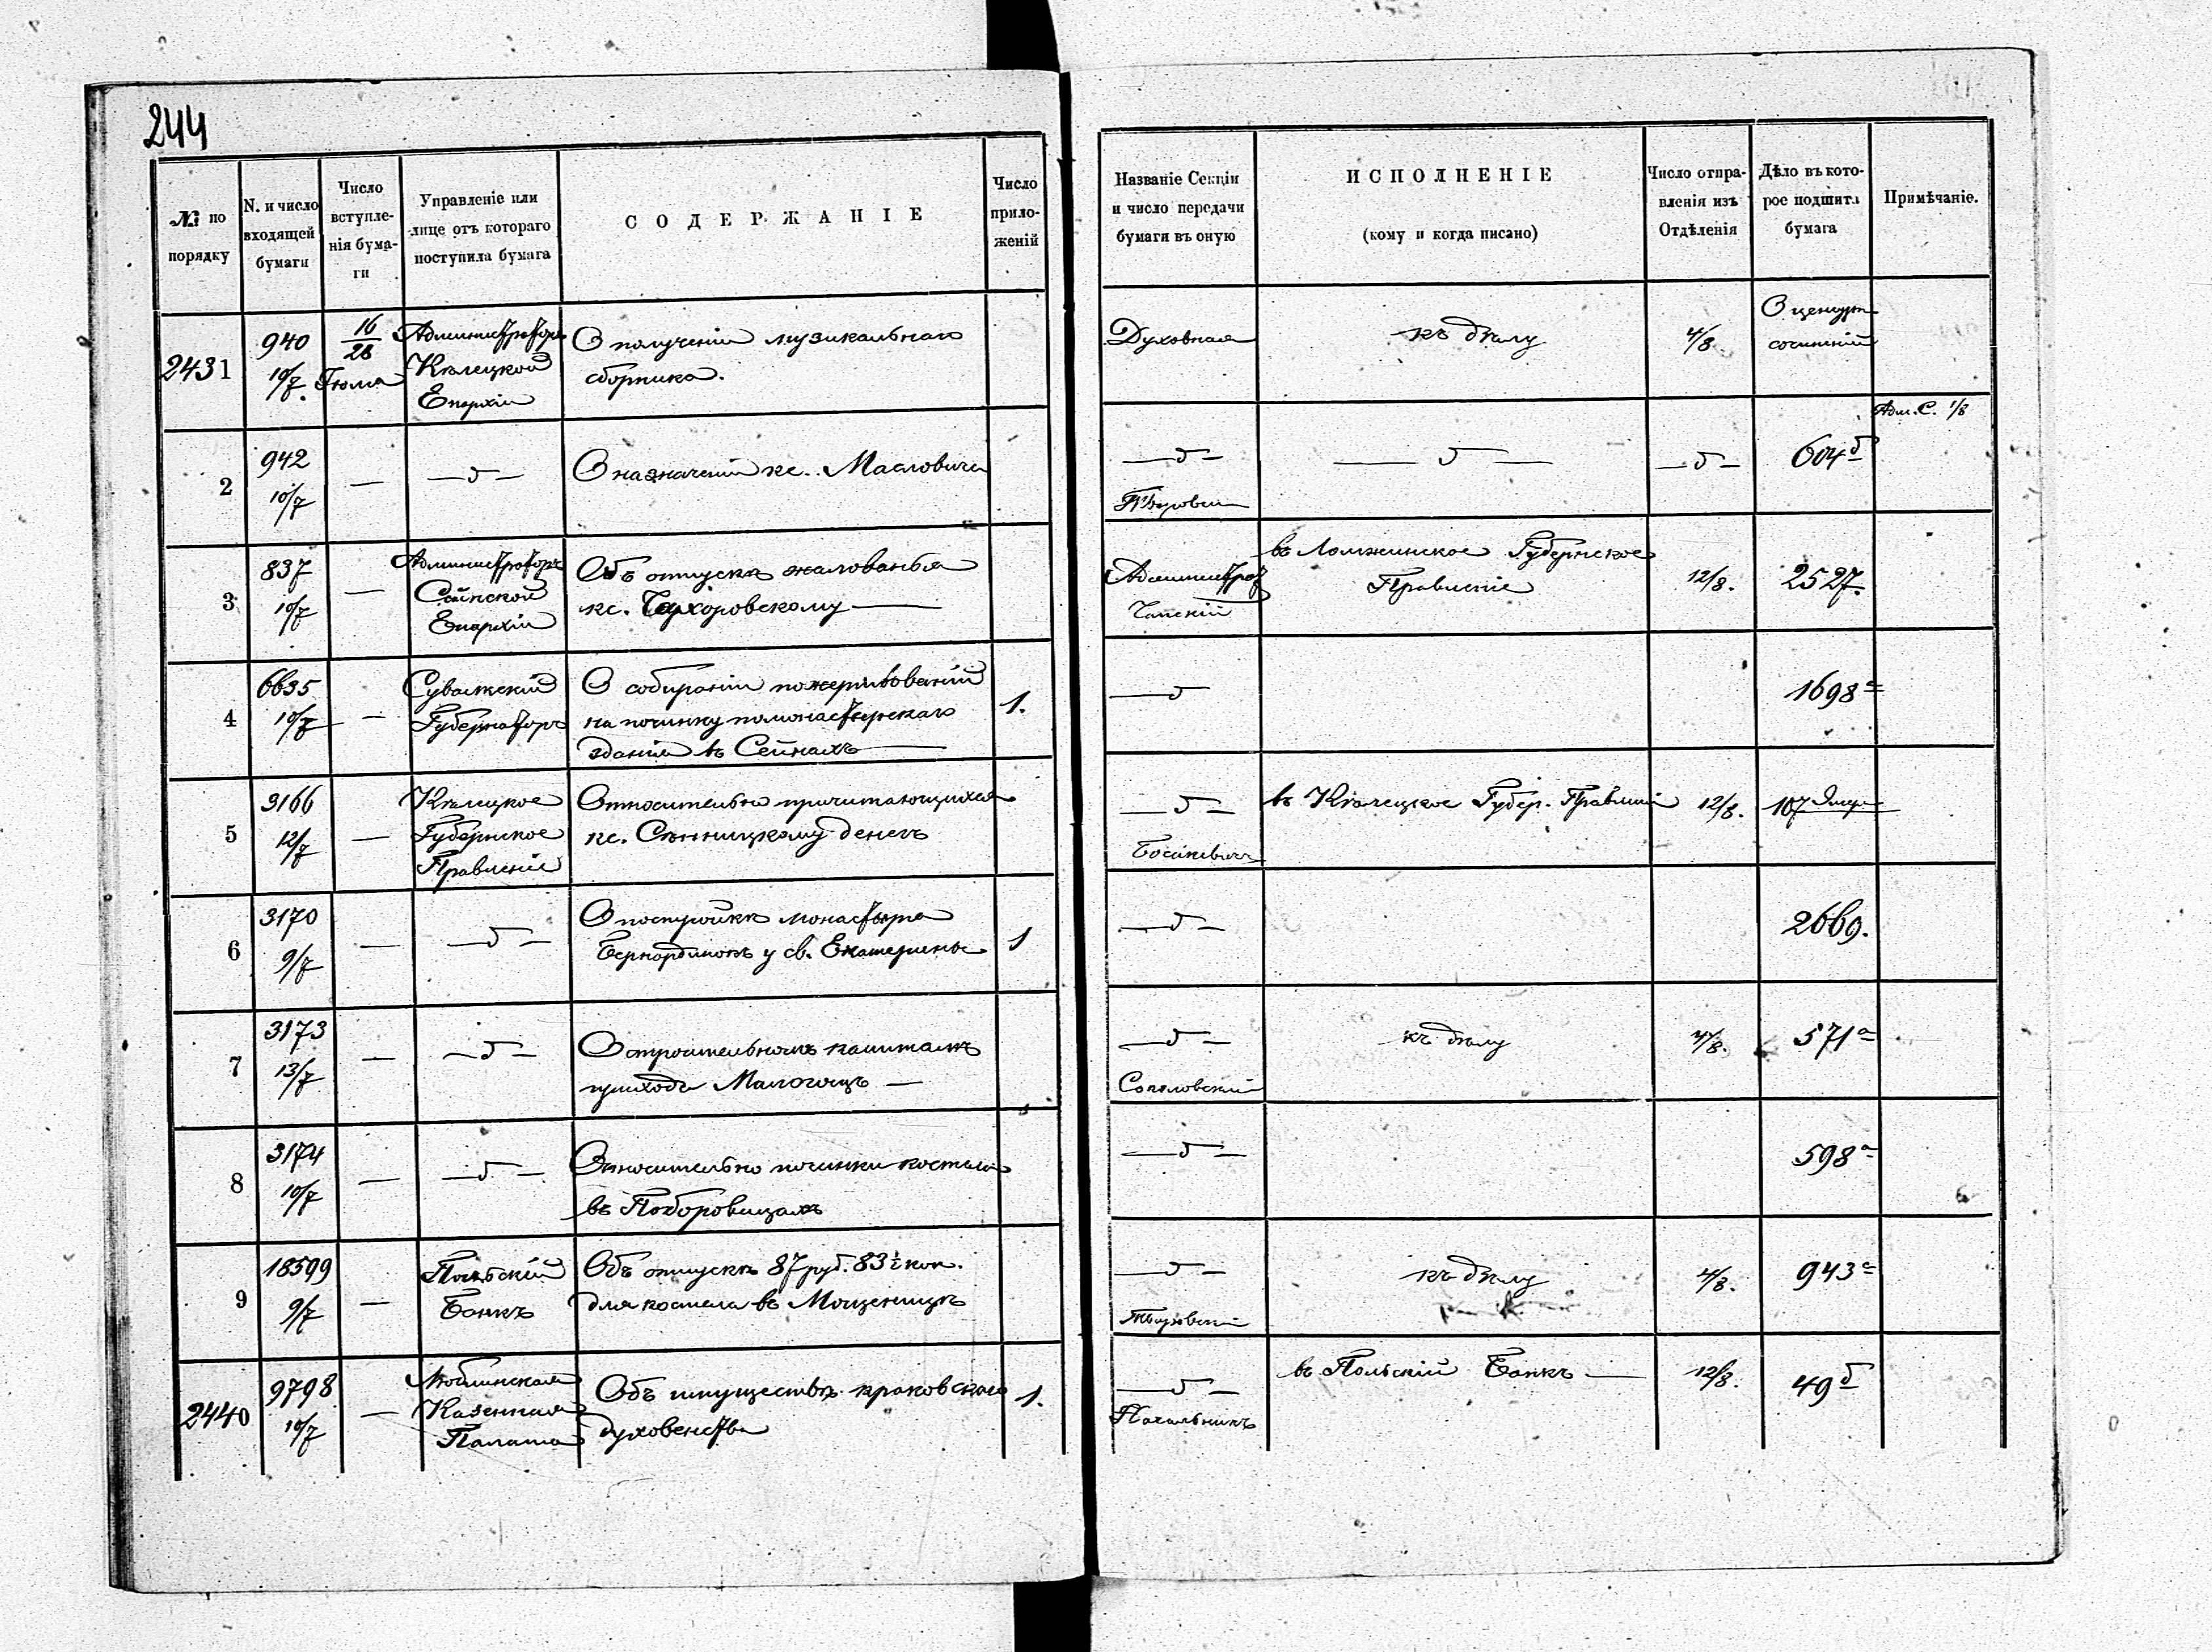 244
№ по порядку
N. и число входящей бумаги
Число вступле-нія бума-ги
Управленіе или лице отъ котораго поступила бумага
СОДЕРЖАНІЕ
Число прило-женій
Названіе Секціи и число передачи бумаги въ оную
ИСПОЛНЕНІЕ
(кому и когда писано)
Число отпра-вленія изъ Отдѣленія
Дѣло въ кото-рое подшита бумага
Примѣчаніе.
2431
940
10/7.
16/28
Іюля
Администраторъ
Кѣлецкой
Епархіи
О полученіи музикальнаго
сборника.
Духовная
къ дѣлу
4/8
О цензурѣ
сочиненій
2
942
10/7
—
—д—
О назначеніи кс. Масловича
—д—
—д—
—д—
604 б
Адм. С. 1/8
3
837
10/7
—
Администраторъ
Сейнской
Епархіи
Объ отпускѣ жалованья
кс.
Администрат
Чапскій
въ Ломжинское Губернское
Правленіе
12/8.
2527.
4
6635
10/7
—
Сувалкскій
Губернаторъ
О собираніи пожертвованій
на починку помонастырскаго
зданія въ Сейнахъ
1.
—д
1698 а
5
3166
12/7
—
Кѣлецкое
Губернское
Правленіе
Относительно причитающихся
кс. Сѣнницкому денегъ
—д—
въ Кѣлецкое Губер. Правленіе
12/8.
107
6
3170
9/7
—
—д—
О постройкѣ монастыря
Бернардинокъ у св. Екатерины
1
—д—
2669.
7
3173
13/7
—
—д—
О строительномъ капиталѣ
прихода Малогощъ —
—д—
Соколовскій
къ дѣлу
4/8.
571 а
8
3174
10/7
—
—д—
Относительно починки костела
въ
—д—
598 а
9
18599
9/7
—
Польскій
Банкъ
Объ отпускѣ 87 руб. 83 ½ коп.
для костела въ Мощеницѣ
—д—
къ дѣлу
4/8.
943 а
2440
9798
10/7
—
Люблинская
Казенная
Палата
Объ имуществѣ краковскаго
духовенства
1.
—д—
Начальникъ
въ Польскій Банкъ —
12/8.
49 б